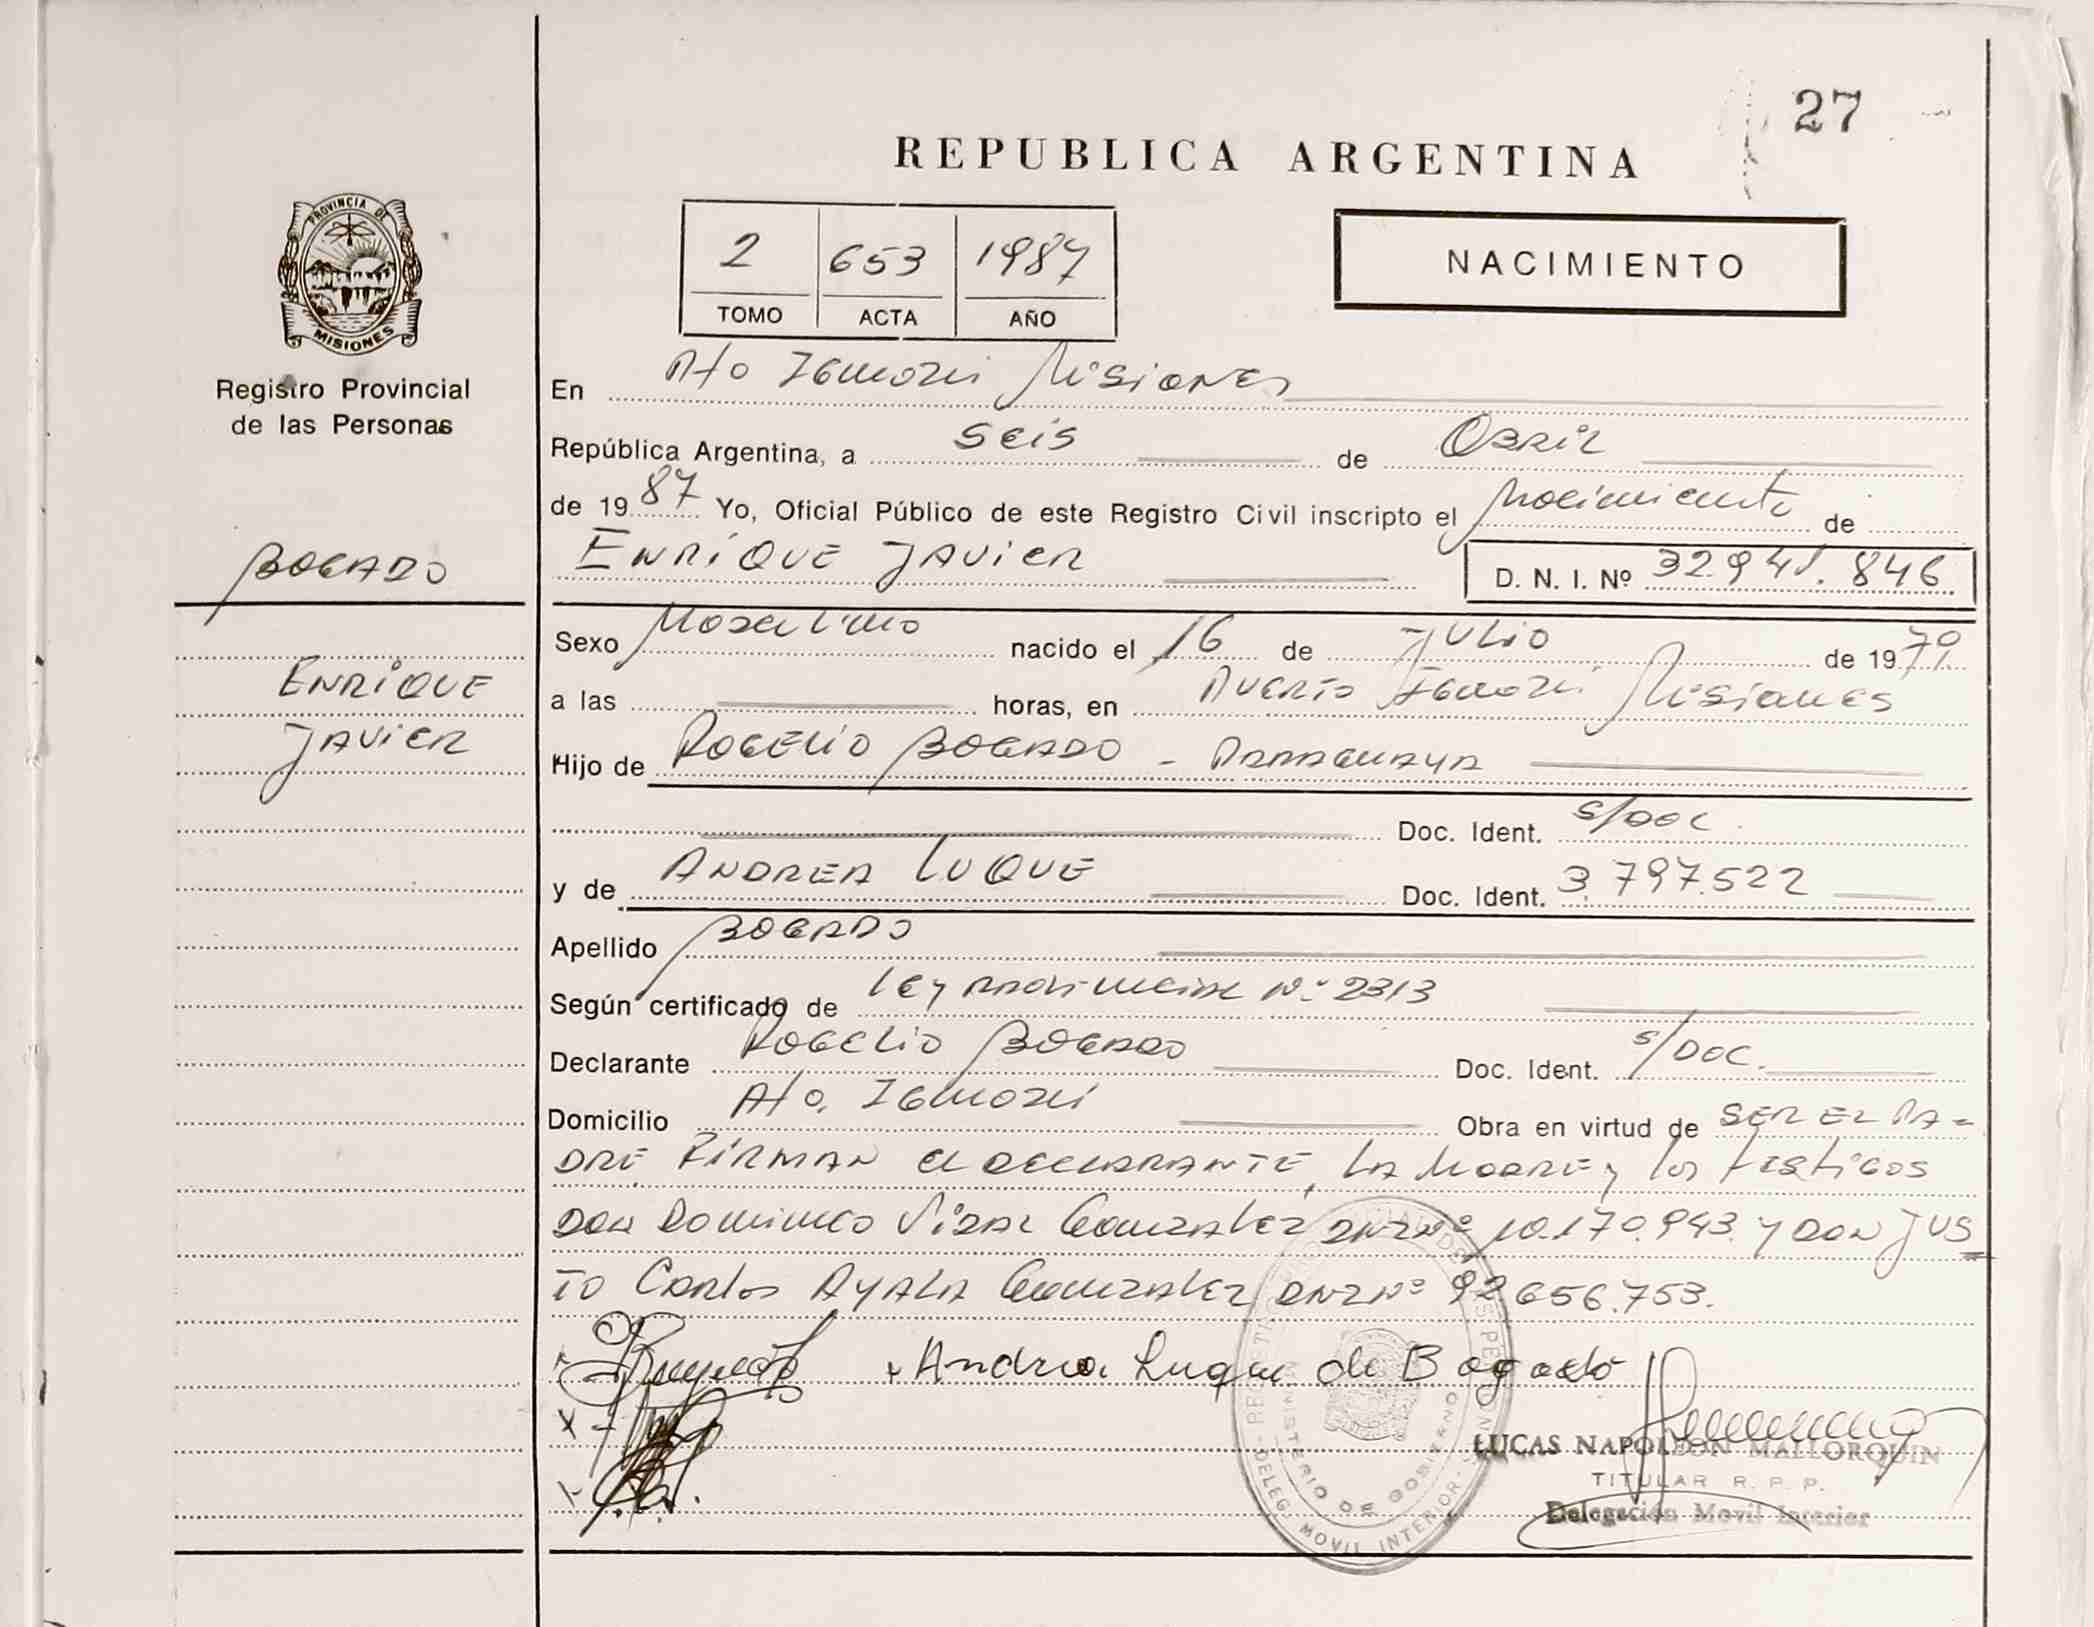 27
REPUBLICA ARGENTINA
PROVINCIA DE
MISIONES
Registro Provincial
de las Personas
2 653 1987
TOMO ACTA AÑO
NACIMIENTO
En Pto Iguazu Misiones
República Argentina, a seis de Abril
de 1987 Yo, Oficial Público de este Registro Civil inscripto el Nacimiento de
BOGADO
ENRIQUE JAVIER D. N. I. Nº 32.941.846
Sexo Masculino nacido el 16 de JULIO de 1979
ENRIQUE
JAVIER
a las horas, en Puerto Iguazu Misiones
Hijo de ROGELIO BOGADO - PARAGUAYA
Doc. Ident. S/DOC.
y de ANDREA LUQUE Doc. Ident. 3.797.522
Apellido BOGADO
Según certificado de Ley Provincial Nº 2313
Declarante ROGELIO BOGADO Doc. Ident. S/DOC.
Domicilio Pto. Iguazu Obra en virtud de SER EL PA=
DRE, FIRMAN el DECLARANTE, LA MADRE y los testigos
DON Domingo Vidal Gonzalez DNI Nº 10.170.943 y DON JUS=
TO Carlos AYALA Gonzalez DNI Nº 92.656.753.
Andrea Luque de Bogado
LUCAS NAPOLEON MALLORQUIN
TITULAR R. P. P.
Delegación Movil Interior
MINISTERIO DE GOBIERNO
DELEG. MOVIL INTERIOR